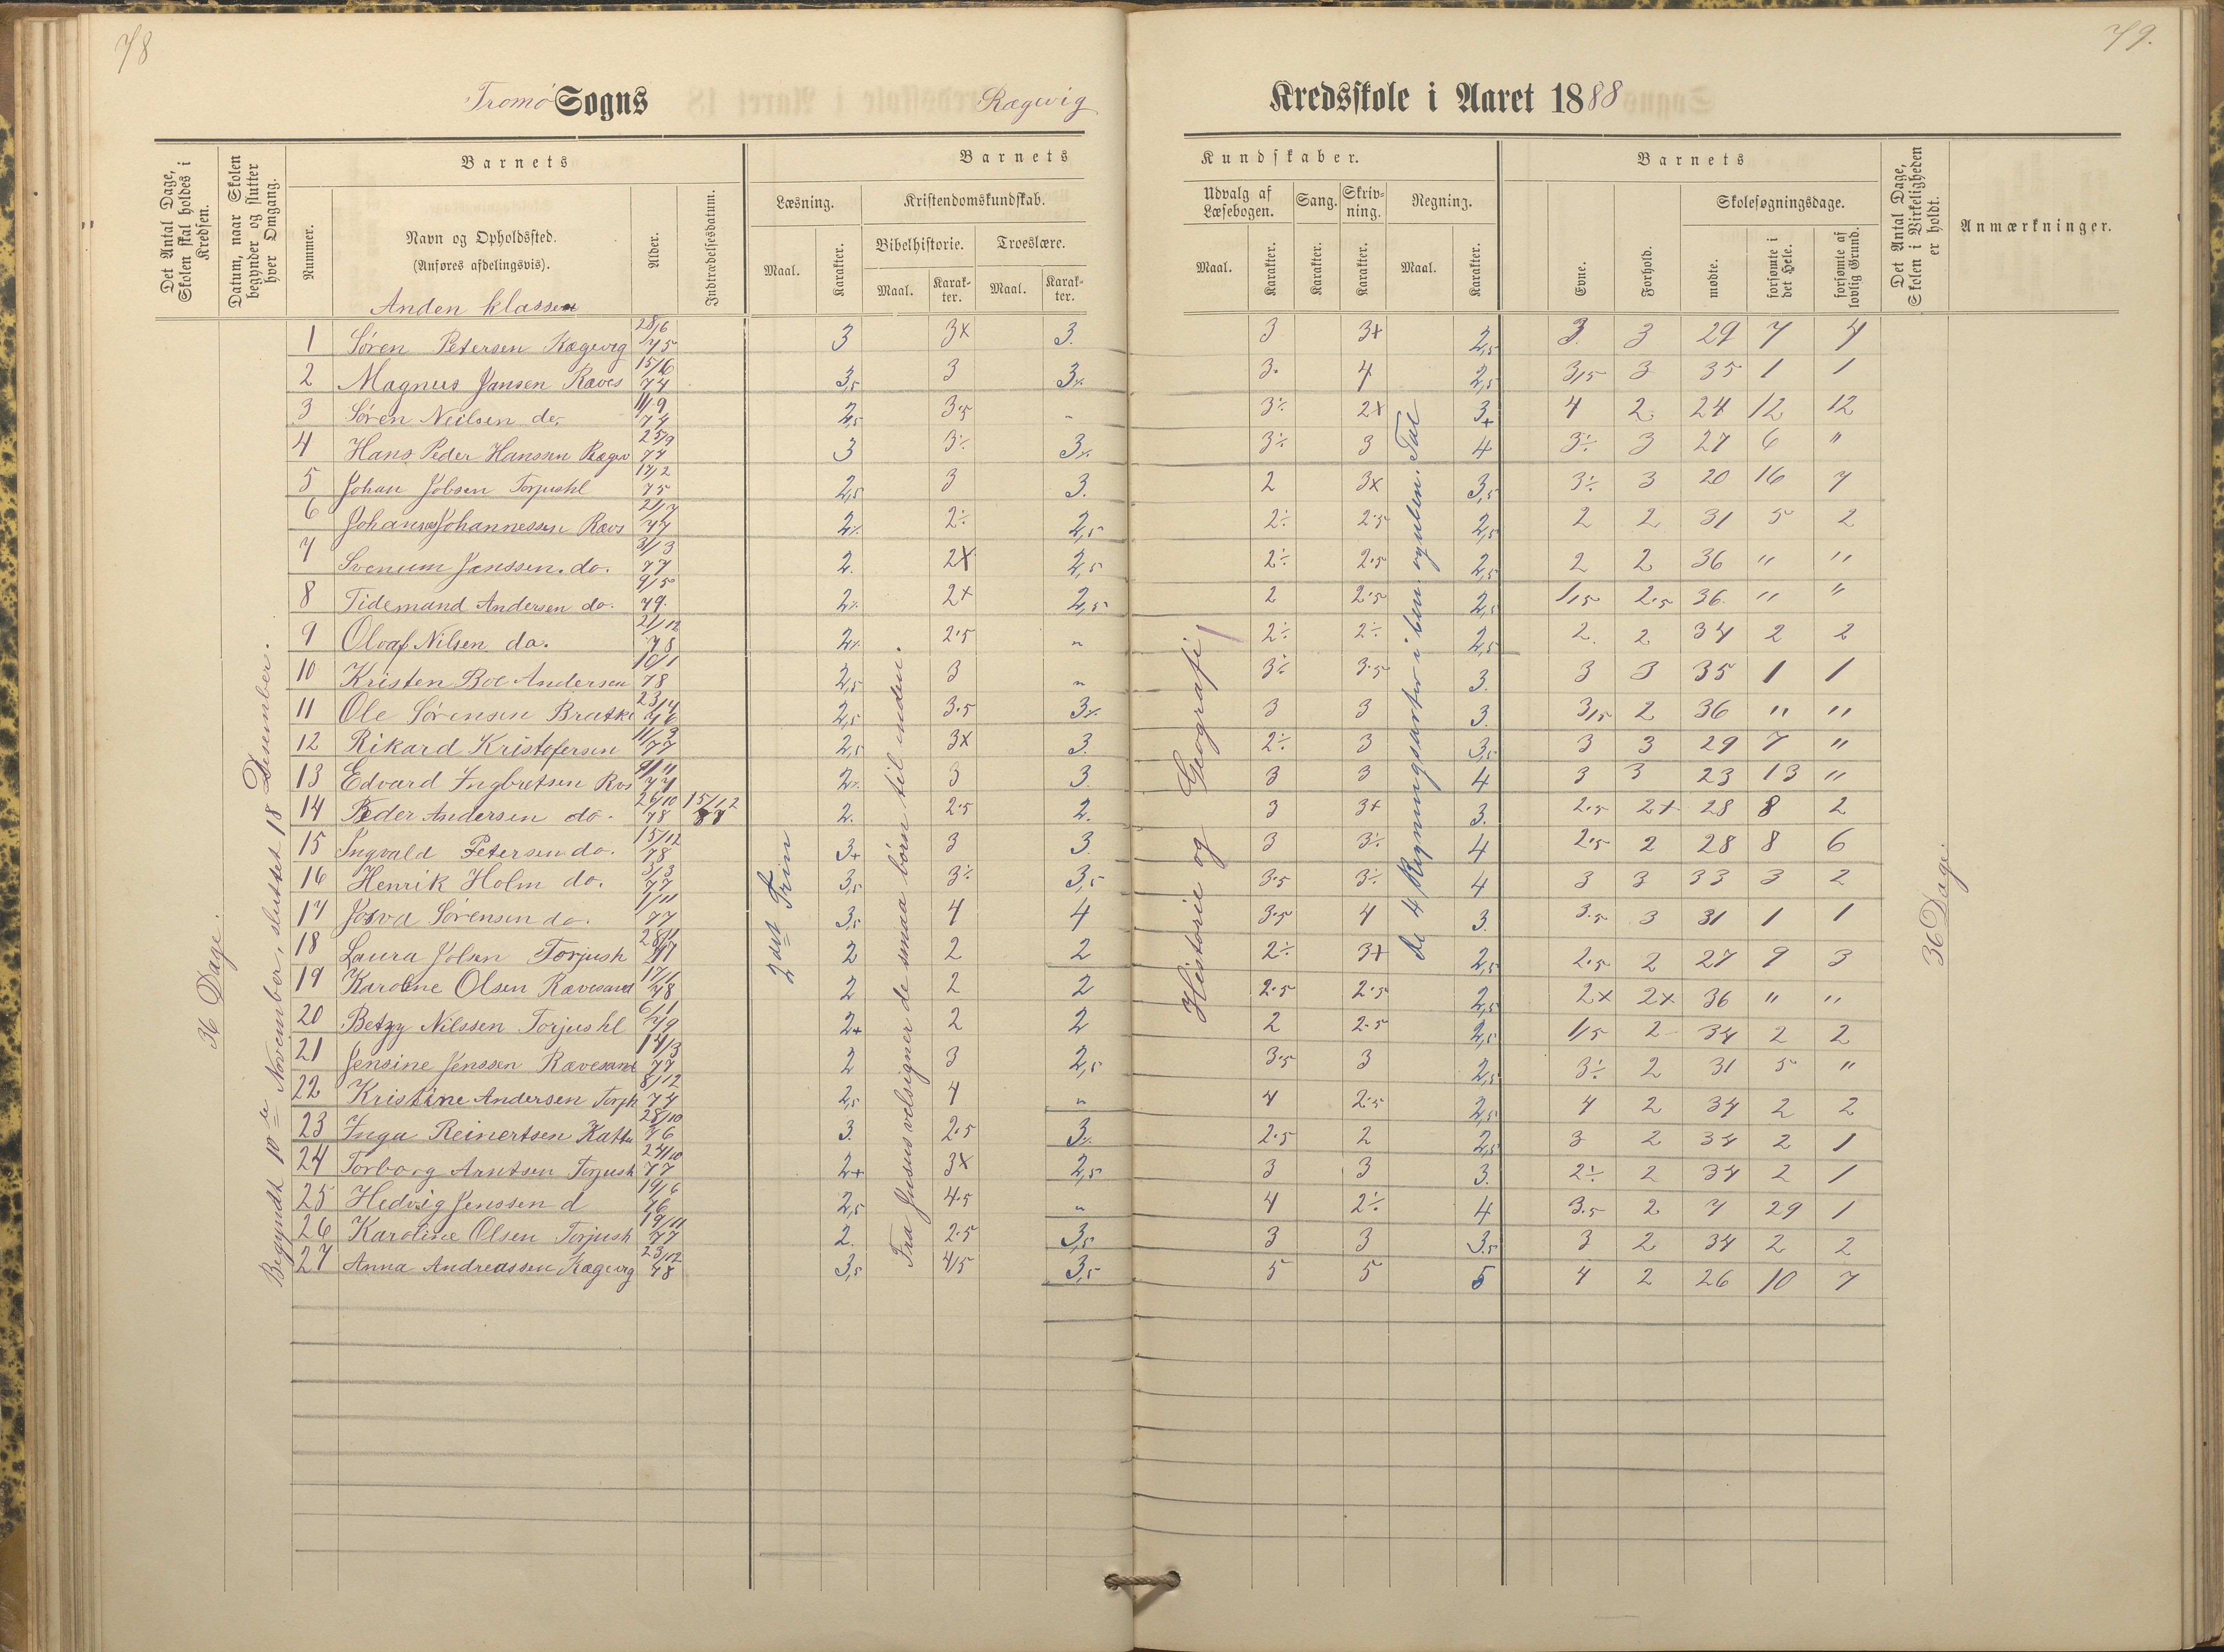 78
79.
Tromø Sogns
Rægevig
Kredsskole i Aaret 1888
Det Antal Dage, Skolen skal holdes i Kredsen.
Datum, naar Skolen begynder og slutter hver Omgang.
Nummer.
Barnets
Navn og Opholdssted.
(Anføres afdelingsvis).
Alder.
Indtrædelsesdatum.
Barnets
Læsning.
Maal.
Karakter.
Kristendomskundskab.
Bibelhistorie.
Maal.
Karak-
ter.
Troeslære.
Maal.
Karak-
ter.
Kundskaber.
Udvalg af
Læsebogen.
Maal.
Karakter.
Sang.
Karakter.
Skriv-
ning.
Karakter.
Regning.
Maal.
Karakter.
Barnets
Evne.
Forhold.
Skolesøgningsdage.
mødte.
forsømte i det Hele.
forsømte af lovlig Grund.
Det Antal Dage, Skolen i Virkeligheden er holdt.
Anmærkninger.
Anden klassen
36 Dage.
Begyndt 10de November, sluttet 18 Desember.
2det Trin
Fra Jesus velsigner de smaa børn til enden.
Historie og Geografi
de 4 Regningsarter i ben. og uben. Tal
36 Dage.
1 Søren Petersen Rægevig 28/6 75 3 3x 3. 3 3+ 2,5 3 3 29 7 7
2 Magnus Jansen Raves 15/6 74 3,5 3 3÷ 3. 4 2,5 3,5 3 35 1 1
3 Søren Neilsen do, 11/9 74 2,5 3.5 " 3÷ 2x 3+ 4 2 24 12 12
4 Hans Peder Hanssen Rægev 25/9 77 3 3÷ 3÷ 3÷ 3 4 3÷ 3 27 6 "
5 Johan Jobsen Torjushl 17/2 75 2,5 3 3. 2 3x 3,5 3÷ 3 20 16 7
6 Johannes Johannessen Ravs 21/7 77 2÷ 2÷ 2,5 2÷ 2.5 2,5 2 2 31 5 2
7 Svenum Janssen. do. 31/3 77 2. 2x 2,5 2÷ 2.5 2,5 2 2 36 " "
8 Tidemand Andersen do. 9/5 79. 2÷ 2+ 2,5 2 2.5 2,5 1,5 2.5 36. " "
9 Oluaf Nilsen do. 21/12 78 2÷ 2.5 " 2÷ 2÷ 2,5 2. 2 34 2 2
10 Kristen Boe Andersen 10/1 78 2,5 3 " 3÷ 3.5 3. 3 3 35 1 1
11 Ole Sørensen Bratte 23/4 76 2,5 3.5 3÷ 3 3 3. 3,5 2 36 " "
12 Rikard Kristofersen 11/3 77 2,5 3x 3. 2÷ 3 3,5 3 3 29 7 "
13 Edvard Ingbretsen Rvs 9/11 77 2÷ 3 3. 3 3 4 3 3 23 13 "
14 Peder Andersen do. 26/10 78 15/12 87 2. 2.5 2. 3 3+ 3. 2.5 2+ 28 8 2
15 Ingvald Petersen do. 15/12 78 3+ 3 3. 3 3÷ 4 2.5 2 28 8 6
16 Henrik Holm do. 3/3 77 3,5 3÷ 3,5 3.5 3÷ 4 3 3 33 3 2
17 Josva Sørensen do. 1/11 77 3,5 4 4 3.5 4 3. 3.5 3 31 1 1
18 Laura Jolsen Torjush 28/11 77 2 2 2 2÷ 3+ 2,5 2.5 2 27 9 3
19 Karoline Olsen Ravesand 17/1 78 2 2 2 2.5 2.5 2,5 2x 2x 36 " "
20 Betzy Nilssen Torjushl 6/1 79 2+ 2 2 2 2.5 2,5 1,5 2 34 2 2
21 Jensine Jenssen Rævesand 17/3 77 2 3 2,5 3.5 3 2,5 3÷ 2 31 5 "
22 Kristine Andersen Torjh 8/12 74 2,5 4 " 4 2.5 2,5 4 2 34 2 2
23 Inga Reinertsen Katte 28/10 76 3. 2.5 3÷ 2.5 2 2,5 3 2 34 2 1
24 Torborg Arntsen Torjush 24/10 77 2+ 3x 2,5 3 3 3. 2÷ 2 34 2 1
25 Hedvig Jenssen d 19/6 76 2,5 4.5 " 4 2÷ 4 3.5 2 7 29 1
26 Karoline Olsen Torjush 19/11 77 2. 2.5 3,5 3 3 3.5 3 2 34 2 2
27 Anna Andreassen Rægevig 23/12 78 3,5 4,5 3,5 5 5 5 4 2 26 10 7